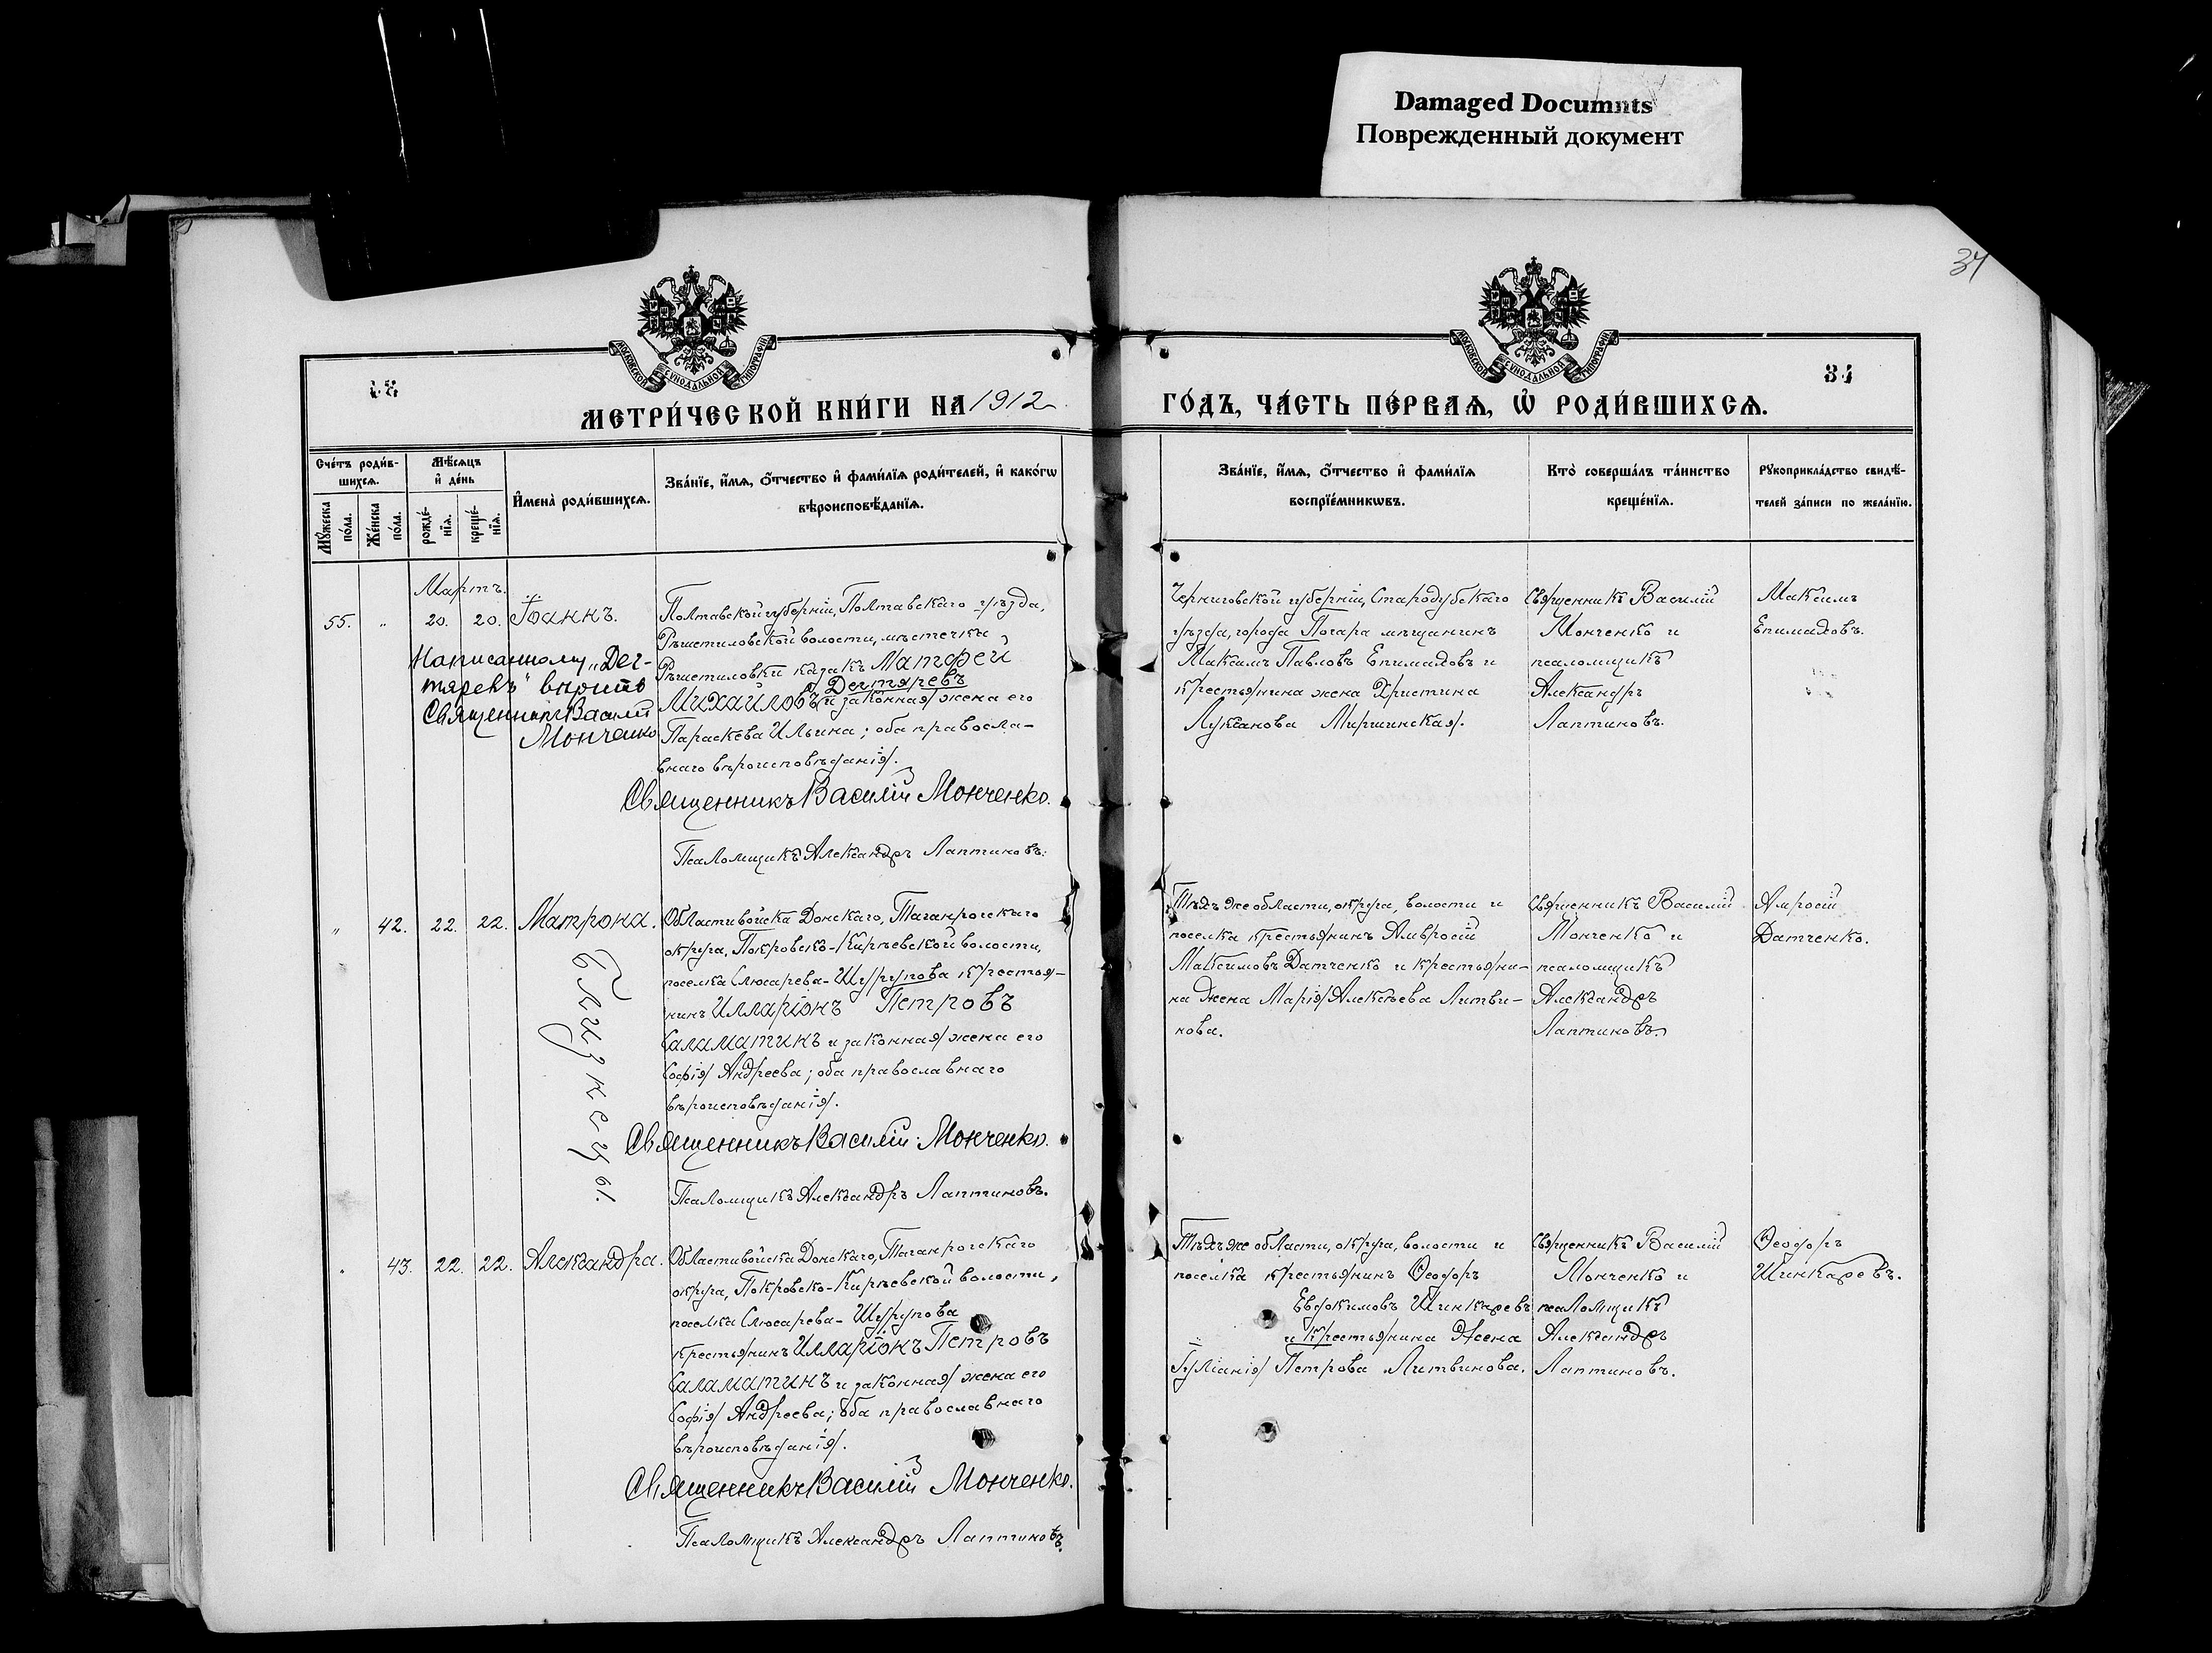 Damaged Documnts
Поврежденный документ
34
МОСКОВСКОЙ СУНОДАЛЬНОЙ ТИПОГРАФІИ
МОСКОВСКОЙ СУНОДАЛЬНОЙ ТИПОГРАФІИ
34
МЕТРИ́ЧЕСКОЙ КНИ́ГИ НА 1912
ГО́ДЪ, ЧА́СТЬ ПЕ́РВАѦ, Ѡ҆ РОДИ́ВШИХСѦ.
Сче́тъ роди́в-
шихсѧ.
Мꙋ́жеска
по́ла.
Же́нска
по́ла.
Мѣ́сѧцъ
и҆ де́нь
рожде́-
нїѧ.
креще́-
нїѧ.
И҆мена̀ роди́вшихсѧ.
Зва́нїе, и҆́мѧ, ѻ҆́тчество и҆ фами́лїѧ роди́телей, и҆ како́гѡ
вѣроисповѣ́данїѧ.
Зва́нїе, и҆́мѧ, ѻ҆́тчество и҆ фами́лїѧ
воспрїе́мникѡвъ.
Кто̀ соверша́лъ та́инство
креще́нїѧ.
Рꙋкоприкла́дство свидѣ́-
телей за́писи по жела́нїю.
Мартъ.
55. " 20. 20. Іоаннъ.
Написанному „Дег-
тяревъ" вѣрить
Священникъ Василій
Монченко
Полтавской губерніи, Полтавскаго уѣзда,
Рѣшетиловской волости, мѣстечка
Рѣшетиловки казакъ Матѳей
Михайловъ Дегтяревъ и законная жена его
Параскева Ильина; оба правосла-
внаго вѣроисповѣданія.
Священникъ Василій Монченко.
Псаломщикъ Александръ Лаптиновъ.
Черниговской губерніи, Стародубскаго
уѣзда, города Погара мѣщанинъ
Максимъ Павловъ Епимаховъ и
крестьянина жена Христина
Лукіанова Миршинская.
Священникъ Василій
Монченко и
псаломщикъ
Александръ
Лаптиновъ.
Максимъ
Епимаховъ.
" 42. 22. 22. Матрона.
Близнецы.
Области войска Донскаго, Таганрогскаго
округа, Покровско-Кирѣевской волости,
поселка Слюсарева-Шурупова крестья-
нинъ Илларіонъ Петровъ
Саламатинъ и законная жена его
Софія Андреева; оба православнаго
вѣроисповѣданія.
Священникъ Василій Монченко.
Псаломщикъ Александръ Лаптиновъ.
Тѣхъ же области, округа, волости и
поселка крестьянинъ Амвросій
Максимовъ Датченко и крестьяни-
на жена Марія Алексѣева Литви-
нова.
Священникъ Василій
Монченко и
псаломщикъ
Александръ
Лаптиновъ.
Амросій
Датченко.
43. 22. 22. Александра.
Области войска Донскаго, Таганрогскаго
округа, Покровско-Кирѣевской волости,
поселка Слюсарева-Шурупова
крестьянинъ Илларіонъ Петровъ
Саламатинъ и законная жена его
Софія Андреева; оба православнаго
вѣроисповѣданія.
Священникъ Василій Монченко.
Псаломщикъ Александръ Лаптиновъ.
Тѣхъ же области, округа, волости и
поселка крестьянинъ Ѳеодоръ
Евдокимовъ Шинкаревъ
и крестьянина жена
Іуліанія Петрова Литвинова.
Священникъ Василій
Монченко и
псаломщикъ
Александръ
Лаптиновъ.
Ѳеодоръ
Шинкаревъ.